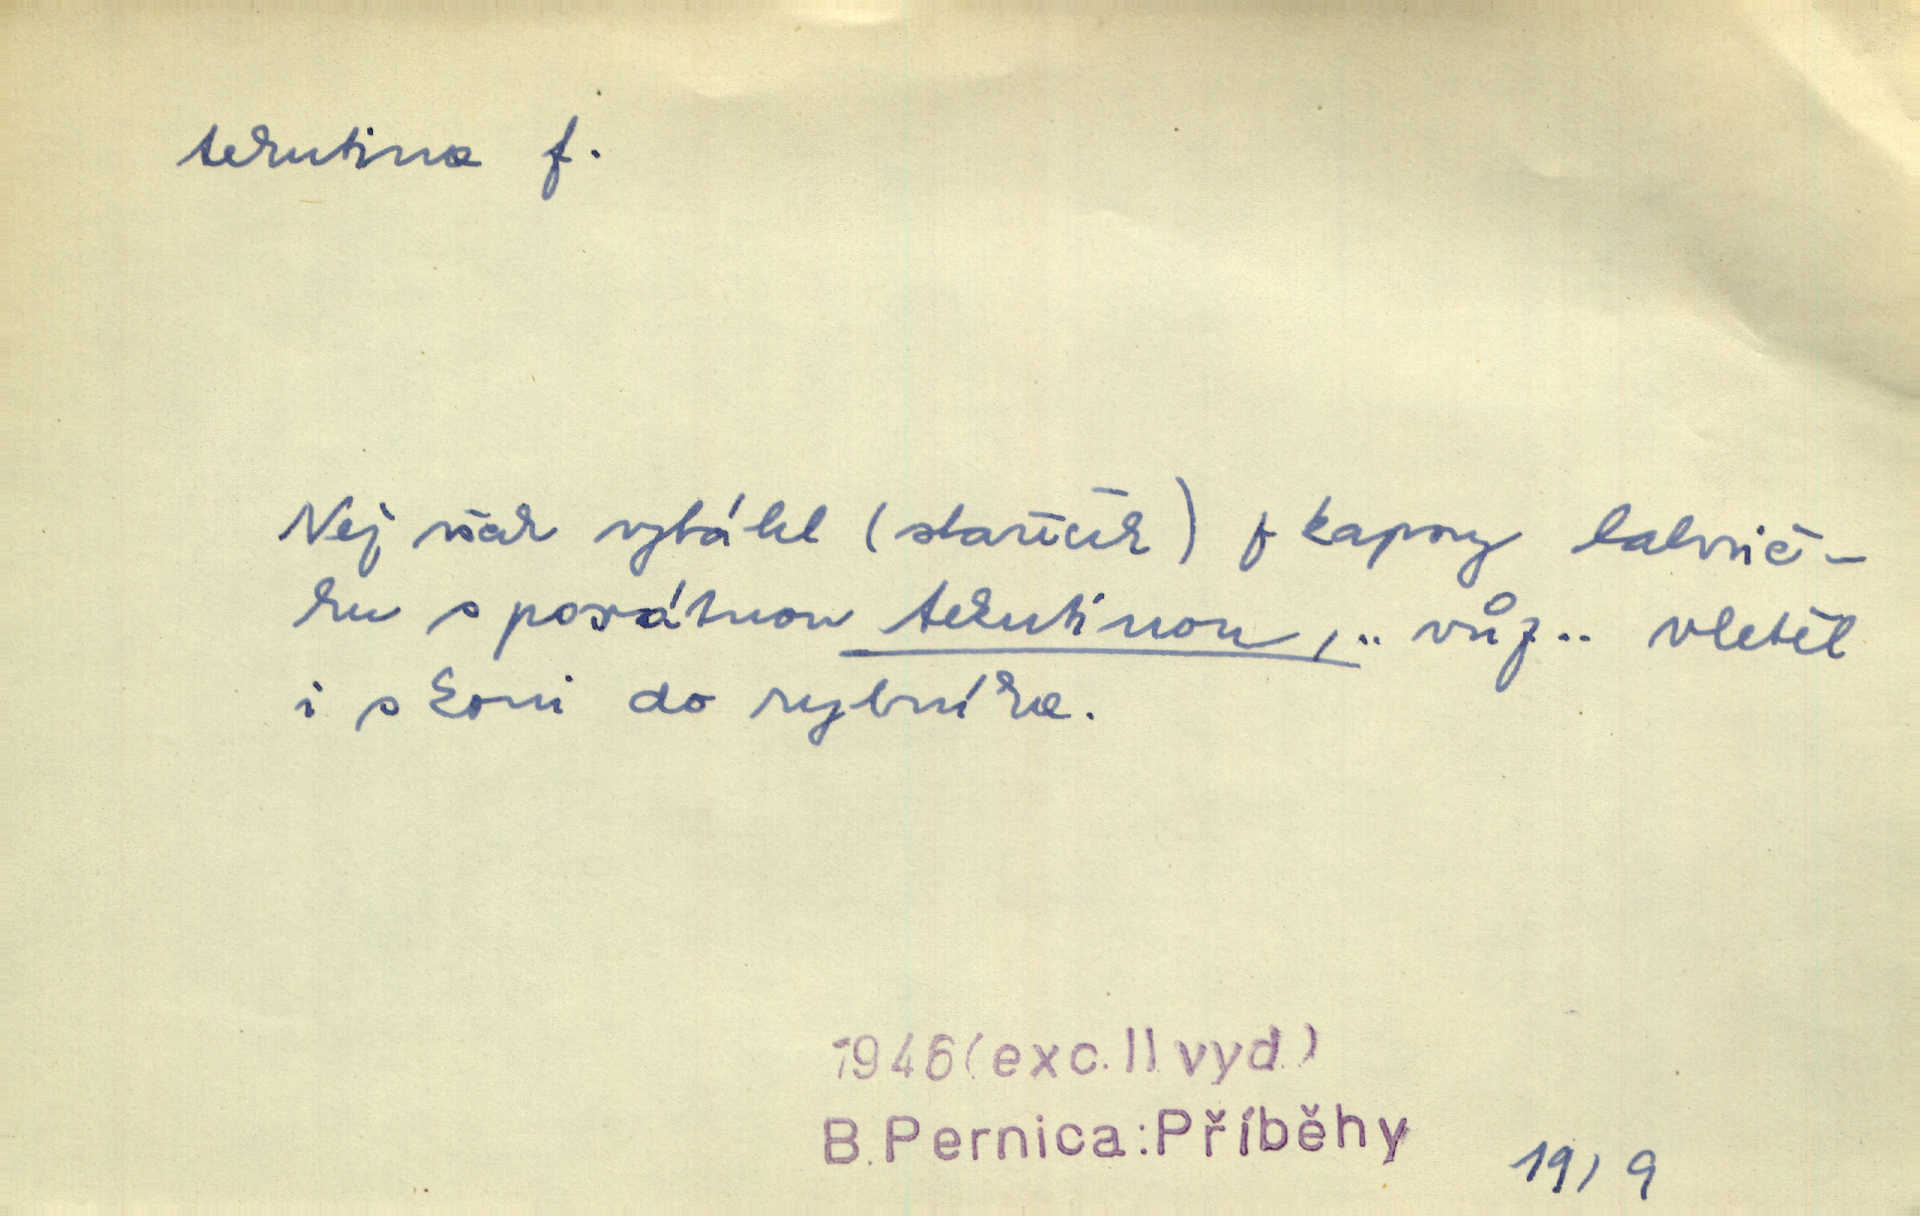 tekutina f.
Nej však vytáhl (staříček) z kapsy lahvič-
ku s posvátnou tekutinou,.. vůz.. vletěl
i s koni do rybníka.
1946(exc. II vyd.)
B. Pernica: Příběhy
19, 9